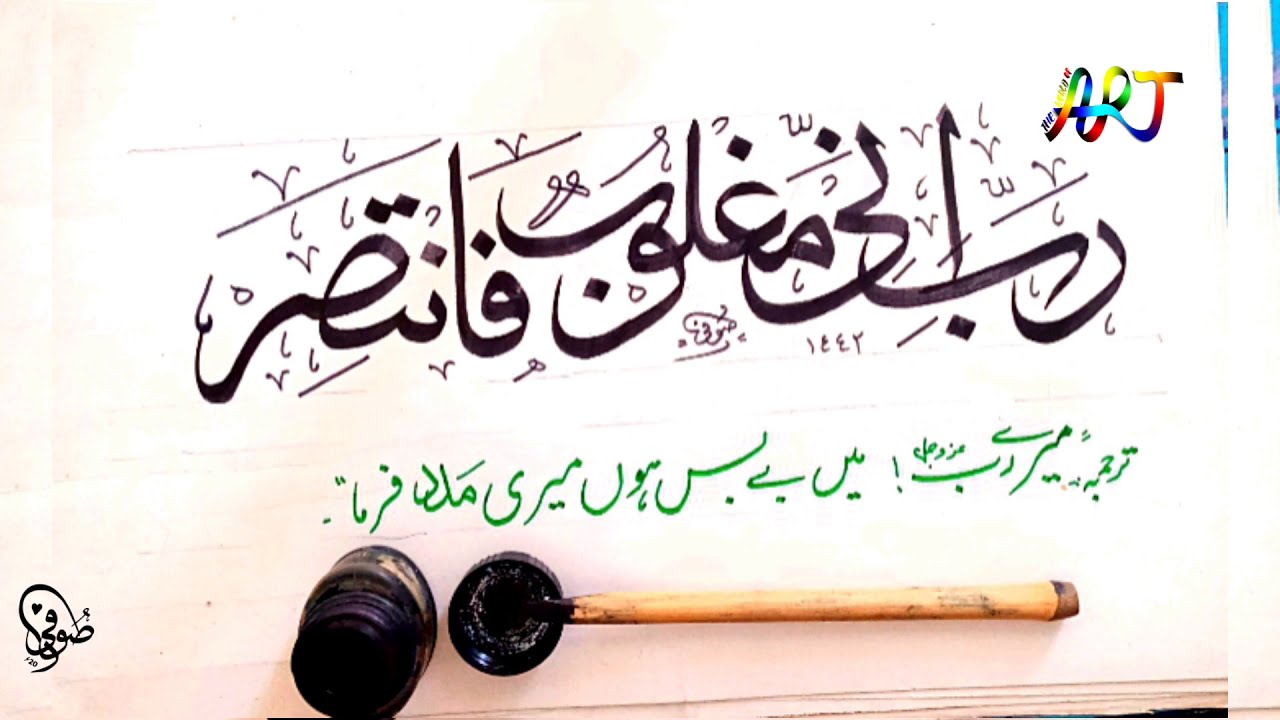 THE WORLD OF ART
رب انی مغلوب فانتصر
صوفی
١٤٤٢
ترجمہ: "میرے رب عزوجل! میں بے بس ہوں میری مدد فرما"۔
صوفی
20